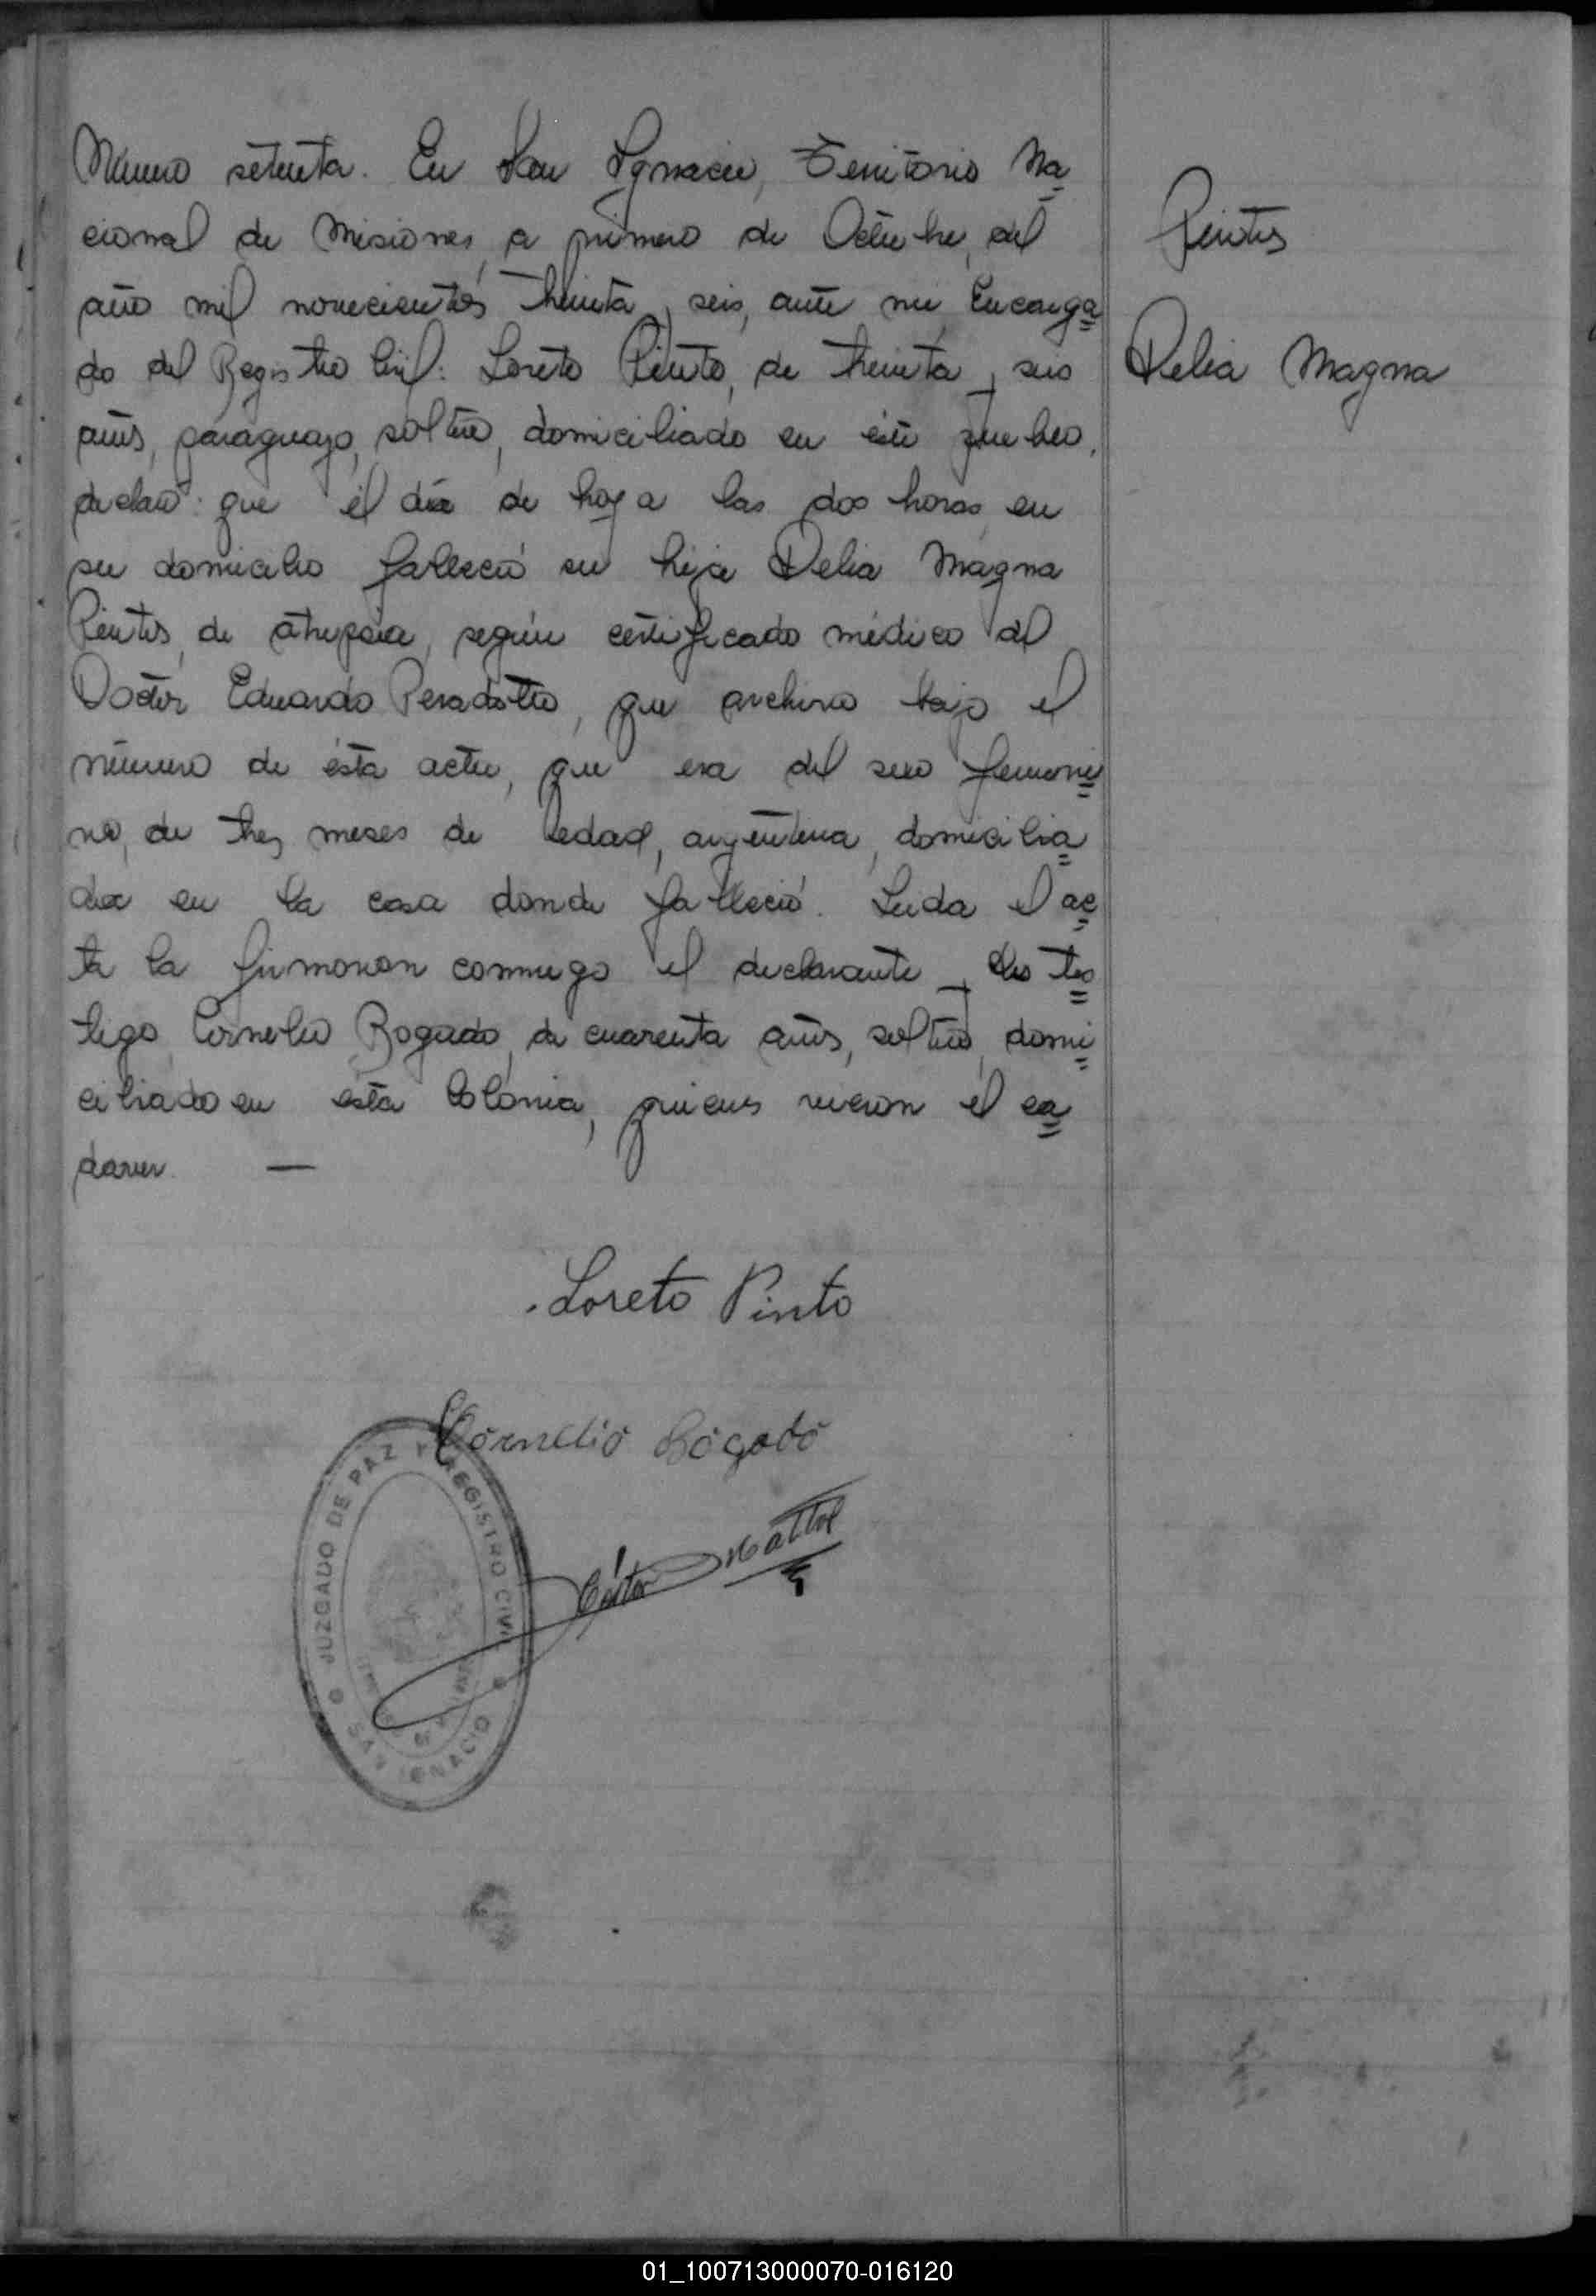 Número setenta. En San Ygnacio, Territorio Na
cional de Misiones, a primero de Octubre, del
año mil novecientos treinta y seis, ante mi Encarga
do del Registro Civil: Loreto Pinto, de treinta y seis
años, paraguayo, soltero, domiciliado en éste pueblo,
declaró: que el día de hoy a las dos horas en
su domicilio falleció su hija Delia Magna
Pintos, de atrepsia, según certificado médico del
Doctor Eduardo que archivo bajo el
número de ésta acta, que era del sexo femeni
no, de tres meses de edad, argentina, domicilia
da en la casa donde falleció. Leida el ac
ta la firmaron conmigo el declarante y tes
tigo Cornelio Bogado, de cuarenta años, soltero, domi
ciliado en ésta Colonia, quienes vieron el ca
daver. —
Pintos
Delia Magna
Loreto Pinto
Cornelio Bogado
JUZGADO DE PAZ Y REGISTRO CIVIL
SAN IGNACIO
01_100713000070-016120